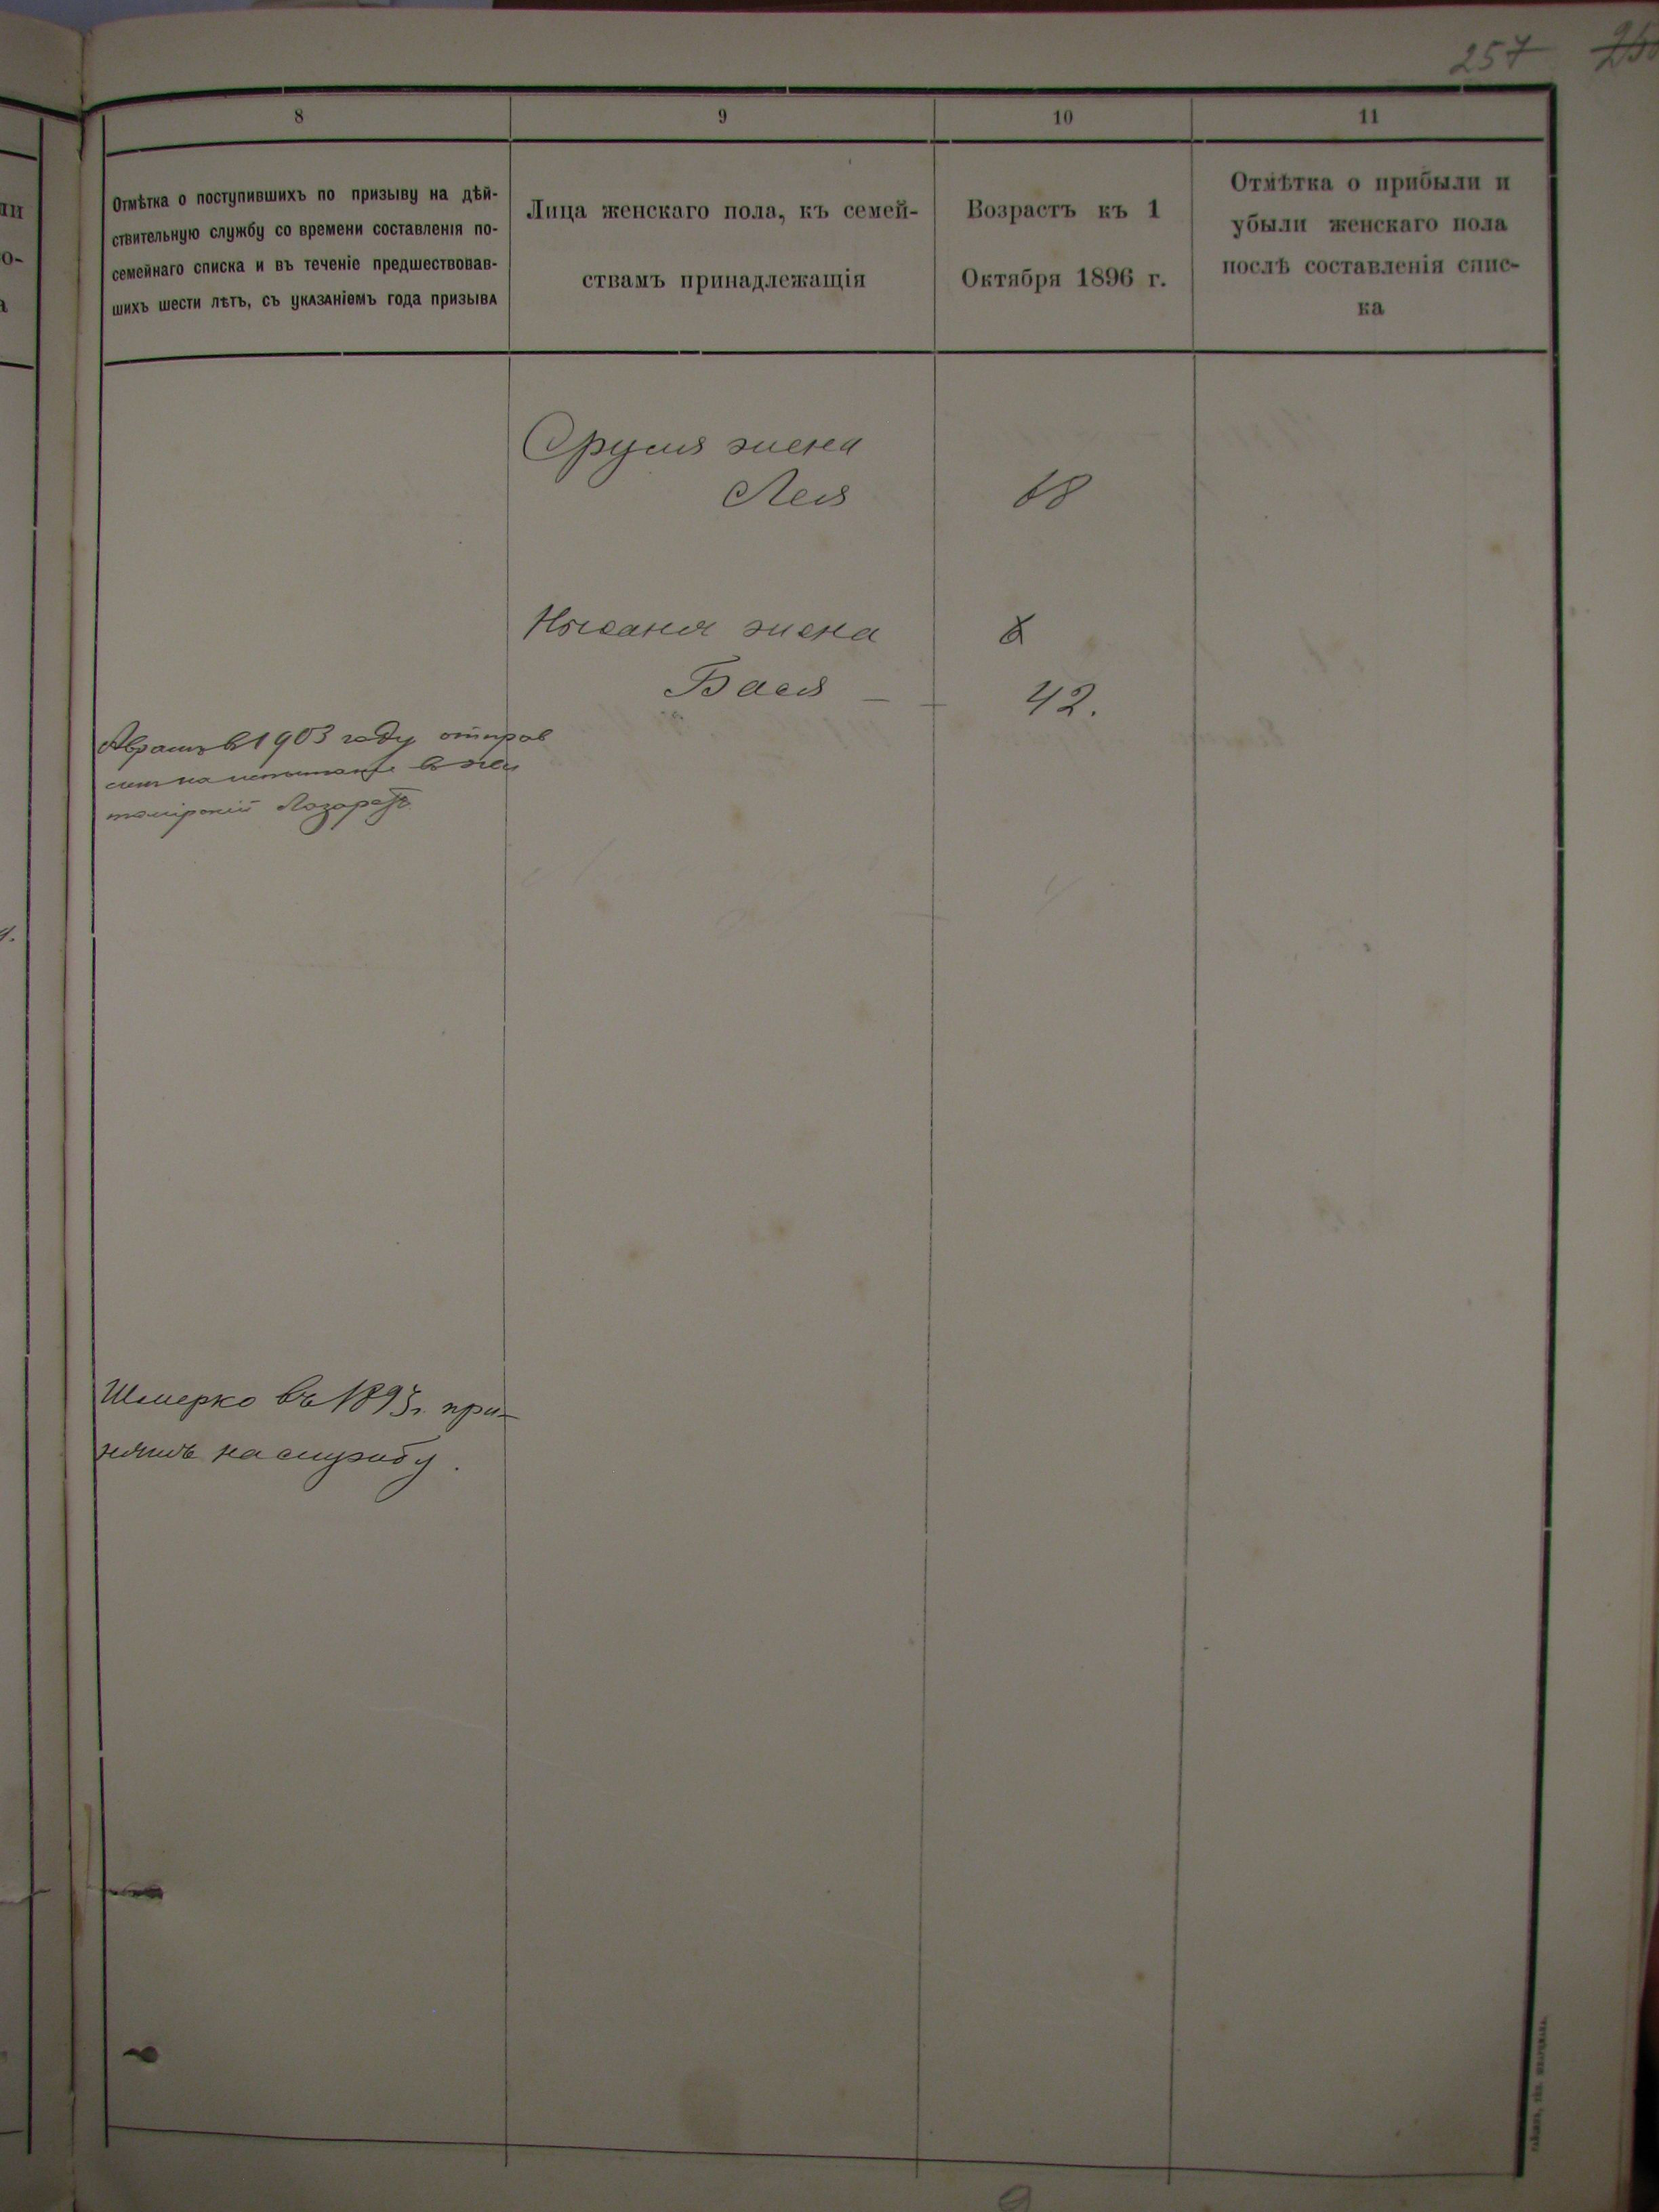 257
8
9
10
11
Отмѣтка о поступившихъ по призыву на дѣй-
ствительную службу со времени составленія по-
семейнаго списка и въ теченіе предшествовав-
шихъ шести лѣтъ, съ указаніемъ года призыва
Лица женскаго пола, къ семей-
ствамъ принадлежащія
Возрастъ къ 1
Октября 1896 г.
Отмѣтка о прибыли и
убыли женскаго пола
послѣ составленія спис-
ка
Сруля жена
Лея 68
Нысана жена
Бася — 42.
Аврамъ в 1903 году отправ
на испытаніе в Жи
томірскій Лазаретъ
Шмерко въ 1895 г. при-
нятъ на службу.